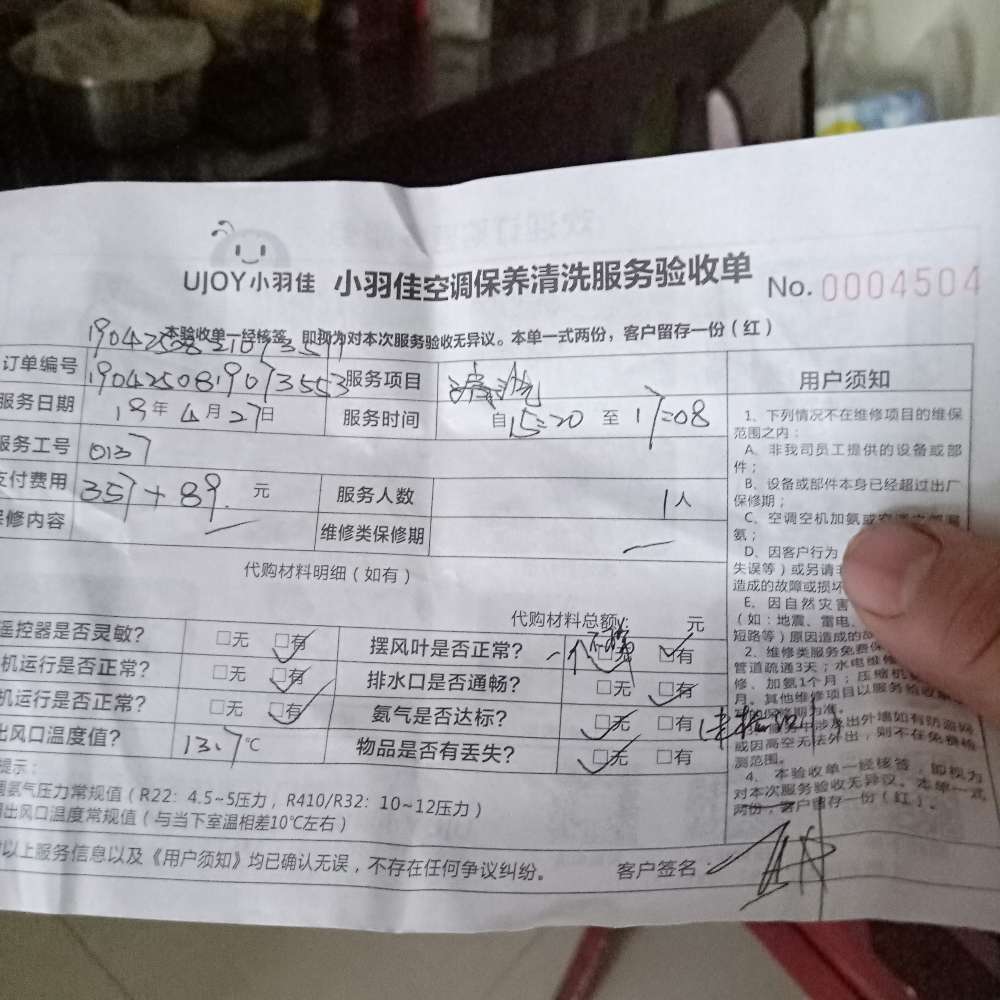 UJOY小羽佳 小羽佳空调保养清洗服务验收单 No. 0004504
本验收单一经核签，即视为对本次服务验收无异议。本单一式两份，客户留存一份（红）
订单编号 1904250819073553 服务项目 清洗
服务日期 19年4月27日 服务时间 自15:20 至 17:08
服务工号 0137
支付费用 357+89 元 服务人数 1人
保修内容 维修类保修期
代购材料明细（如有）
代购材料总额¥： 元
遥控器是否灵敏？ 无 有 摆风叶是否正常？ 一个 无 有
机运行是否正常？ 无 有 排水口是否通畅？ 无 有
机运行是否正常？ 无 有 氨气是否达标？ 无 有
出风口温度值？ 13.7℃ 物品是否有丢失？ 无 有
提示：
氨气压力常规值（R22：4.5~5压力，R410/R32：10~12压力）
出风口温度常规值（与当下室温相差10℃左右）
以上服务信息以及《用户须知》均已确认无误，不存在任何争议纠纷。 客户签名：
用户须知
1、下列情况不在维修项目的维保
范围之内：
A、非我司员工提供的设备或部
件；
B、设备或部件本身已经超过出厂
保修期；
C、空调空机加氨或
氨；
D、因客户行为
失误等）或另请
造成的故障或损坏
E、因自然灾害
（如：地震、雷电、
短路等）原因造成的故
2、维修类服务免费保
管道疏通3天；水电维修
修、加氨1个月；压缩机
月，其他维修项目以服务验收单
保修期为准。
涉及出外墙如有防盗网
或因高空无法外出，则不在免费检
测范围。
4、本验收单一经核答，即视为
对本次服务验收无异议。本单一式
两份，客户留存一份（红）。